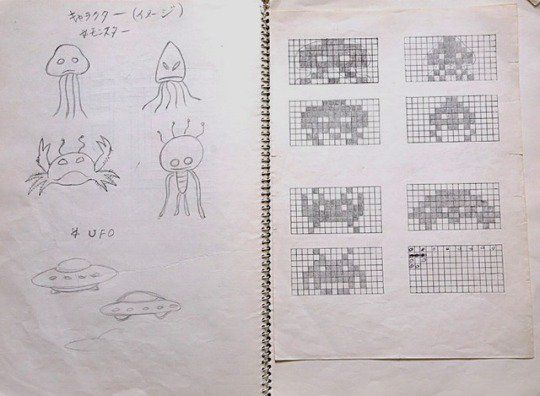 キャラクター (イメージ)
# モンスター
# UFO